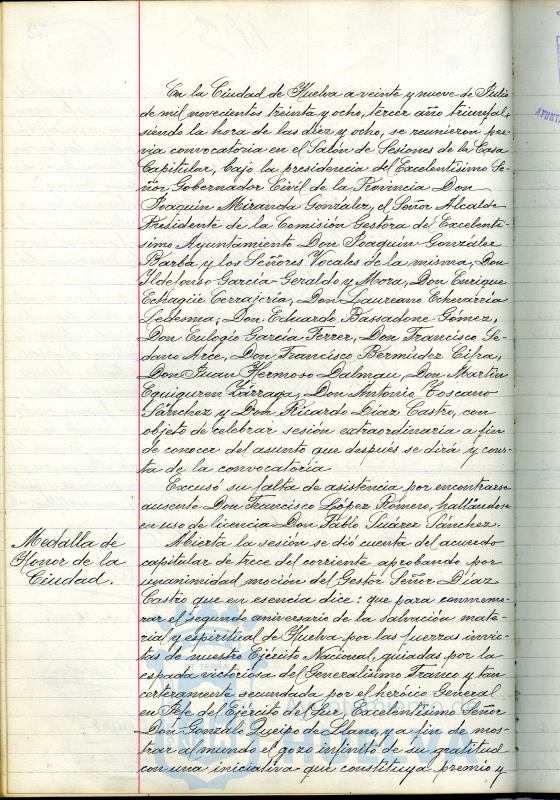 En la Ciudad de Huelva a veinte y nueve de Julio
de mil novecientos treinta y ocho, tercer año triunfal,
siendo la hora de las diez y ocho, se reunieron pre-
via convocatoria en el Salón de Sesiones de la Casa
Capitular, bajo la presidencia del Excelentísimo Se-
ñor Gobernador Civil de la Provincia Don
Joaquín Miranda González, el Señor Alcalde
Presidente de la Comisión Gestora del Excelentí-
simo Ayuntamiento Don Joaquín González
Barba y los Señores Vocales de la misma, Don
Ildefonso García-Geraldo y Mora, Don Enrique
Echagüe Cerrajería, Don Laureano Echevarria
Ledesma, Don Eduardo Bassadone Gómez,
Don Eulogio García Ferrer, Don Francisco Se-
dano Arce, Don Francisco Bermúdez Cifra,
Don Juan Hermoso Dalmau, Don Martín
Eguiguren Lárraga, Don Antonio Toscano
Sánchez y Don Ricardo Díaz Castro, con
objeto de celebrar sesión extraordinaria a fin
de conocer del asunto que después se dirá y cons-
ta de la convocatoria
Excusó su falta de asistencia por encontrarse
ausente Don Francisco López Romero, hallándose
en uso de licencia Don Pablo Suárez Sánchez.
Medalla de
Honor de la
Ciudad.
Abierta la sesión se dió cuenta del acuerdo
capitular de trece del corriente aprobando por
unanimidad moción del Gestor Señor Díaz
Castro que en esencia dice: que para conmemo-
rar el segundo aniversario de la salvación mate-
rial y espiritual de Huelva por las fuerzas invic-
tas de nuestro Ejército Nacional, guiadas por la
espada victoriosa del Generalísimo Franco y tan
certeramente secundada por el heróico General
en Jefe del Ejército del Sur Excelentísimo Señor
Don Gonzalo Queipo de Llano, y a fin de mos-
trar al mundo el gozo infinito de su gratitud
con una iniciativa que constituya premio y
Ayuntamiento de
HUELVA